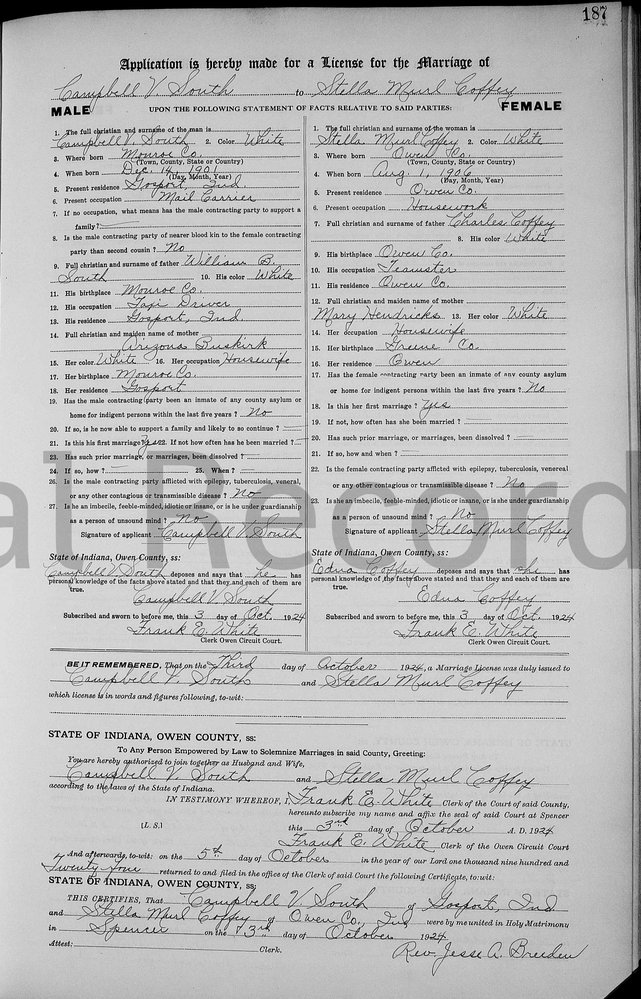 187
Application is hereby made for a License for the Marriage of
Campbell V. South to Stella Murl Coffey
MALE UPON THE FOLLOWING STATEMENT OF FACTS RELATIVE TO SAID PARTIES: FEMALE
1. The full christian and surname of the man is
Campbell V. South 2. Color White
3. Where born Monroe Co.
(Town, County, State or Country)
4. When born Dec. 14, 1901
(Day, Month, Year)
5. Present residence Gosport, Ind.
6. Present occupation Mail Carrier
7. If no occupation, what means has the male contracting party to support a
family?
8. Is the male contracting party of nearer blood kin to the female contracting
party than second cousin? No
9. Full christian and surname of father William B.
South 10. His color White
11. His birthplace Monroe Co.
12. His occupation Taxi Driver
13. His residence Gosport, Ind
14. Full christian and maiden name of mother
Arizona Buskirk
15. Her color White 16. Her occupation Housewife
17. Her birthplace Monroe Co.
18. Her residence Gosport
19. Has the male contracting party been an inmate of any county asylum or
home for indigent persons within the last five years? No
20. If so, is he now able to support a family and likely to so continue?
21. Is this his first marriage? Yes 22. If not how often has he been married?
23. Has such prior marriage, or marriages, been dissolved?
24. If so, how? 25. When?
26. Is the male contracting party afflicted with epilepsy, tuberculosis, venereal,
or any other contagious or transmissible disease? No
27. Is he an imbecile, feeble-minded, idiotic or insane, or is he under guardianship
as a person of unsound mind? No
Signature of applicant Campbell V. South
State of Indiana, Owen County, ss:
Campbell V. South deposes and says that he has
personal knowledge of the facts above stated and that they and each of them are
true.
Campbell V. South
Subscribed and sworn to before me, this 3 day of Oct. 1924
Frank E. White
Clerk Owen Circuit Court.
1. The full christian and surname of the woman is
Stella Murl Coffey 2. Color White
3. Where born Owen Co.
(Town, County, State or Country)
4. When born Aug 1, 1906
(Day, Month, Year)
5. Present residence Owen Co.
6. Present occupation Housework
7. Full christian and surname of father Charles Coffey
8. His color White
9. His birthplace Owen Co.
10. His occupation Teamster
11. His residence Owen Co.
12. Full christian and maiden name of mother
Mary Hendricks 13. Her color White
14. Her occupation Housewife
15. Her birthplace Greene Co.
16. Her residence Owen
17. Has the female contracting party been an inmate of any county asylum
or home for indigent persons within the last five years? No
18. Is this her first marriage? Yes
19. If not, how often has she been married?
20. Has such prior marriage, or marriages, been dissolved?
21. If so, how and when?
22. Is the female contracting party afflicted with epilepsy, tuberculosis, venereal
or any other contagious or transmissible disease? No
23. Is she an imbecile, feeble-minded, idiotic or insane, or is she under guardianship
as a person of unsound mind? No
Signature of applicant Stella Murl Coffey
State of Indiana, Owen County, ss:
Edna Coffey deposes and says that she has
personal knowledge of the facts above stated and that they and each of them are
true.
Edna Coffey
Subscribed and sworn to before me, this 3 day of Oct. 1924
Frank E. White
Clerk Owen Circuit Court.
al Record
BE IT REMEMBERED, That on the Third day of October 1924, a Marriage License was duly issued to
Campbell V. South and Stella Murl Coffey
which license is in words and figures following, to-wit:
STATE OF INDIANA, OWEN COUNTY, ss:
To Any Person Empowered by Law to Solemnize Marriages in said County, Greeting:
You are hereby authorized to join together as Husband and Wife,
Campbell V. South and Stella Murl Coffey
according to the laws of the State of Indiana.
IN TESTIMONY WHEREOF, I, Frank E. White Clerk of the Court of said County,
hereunto subscribe my name and affix the seal of said Court at Spencer
[L. S.] this 3rd day of October A. D. 1924
Frank E. White, Clerk of the Owen Circuit Court
And afterwards, to-wit: on the 5th day of October in the year of our Lord one thousand nine hundred and
Twenty Four returned to and filed in the office of the Clerk of said Court the following Certificate, to wit:
STATE OF INDIANA, OWEN COUNTY, ss:
THIS CERTIFIES, That Campbell V. South of Gosport, Ind
and Stella Murl Coffey of Owen Co., Ind were by me united in Holy Matrimony
in Spencer on the 3rd day of October 1924
Attest: Clerk. Rev. Jesse A. Breeden